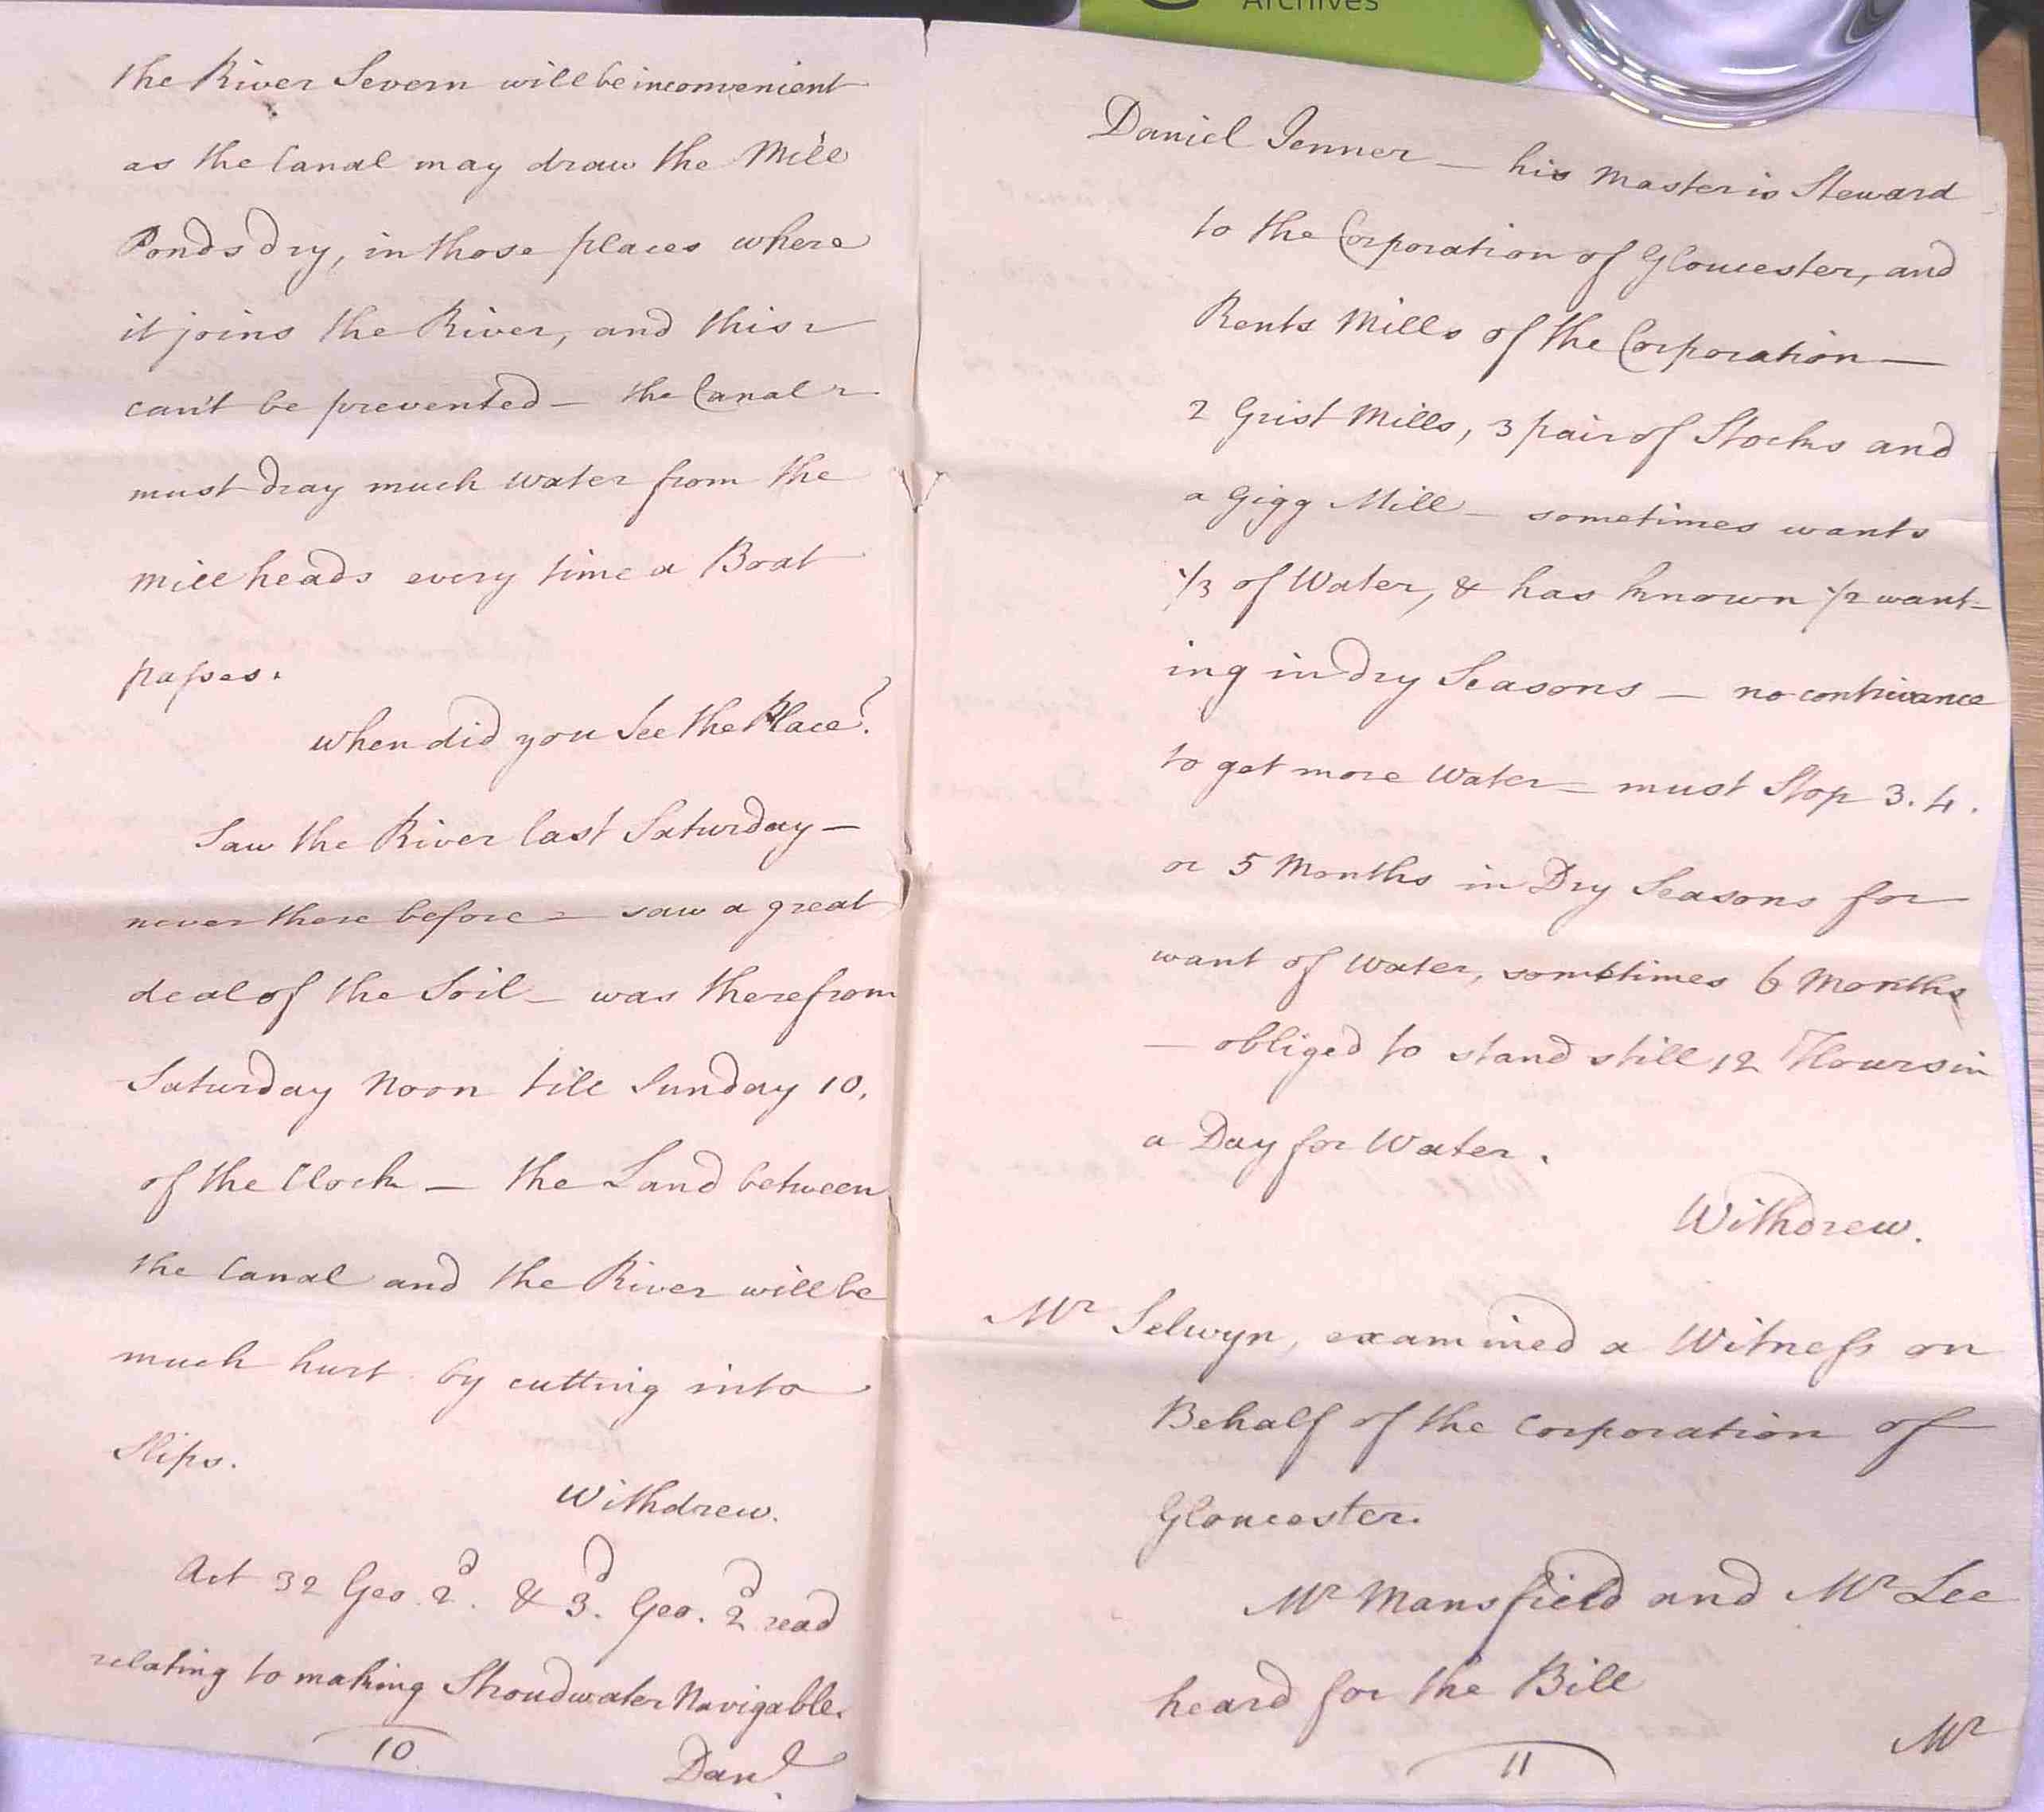 Archives
the River Severn will be inconvenient
as the Canal may draw the Mill
Ponds dry, in those places where
it joins the River, and this
can't be prevented – the Canal
must dray much water from the
mill heads every time a Boat
passes.
when did you See the Place?
Saw the River last Saturday –
never there before – saw a great
deal of the Soil – was there from
Saturday Noon till Sunday 10,
of the Clock – the Land between
the Canal and the River will be
much hurt by cutting into
Slips.
Withdrew.
Act 32 Geo. 2d. & 3d. Geo. 2d read
relating to making Stroudwater Navigable.
10
Danl.
Daniel Jenner – his Master is Steward
to the Corporation of Gloucester, and
Rents Mills of the Corporation –
2 Grist Mills, 3 pair of Stocks and
a Gigg Mill – sometimes wants
1/3 of Water, & has known 1/2 want-
ing in dry Seasons – no contrivance
to get more Water – must Stop 3. 4.
or 5 Months in Dry Seasons for
want of Water, sometimes 6 Months
– obliged to stand still 12 Hours in
a Day for Water.
Withdrew.
Mr Selwyn, examined a Witness on
Behalf of the Corporation of
Gloucester.
Mr Mansfield and Mr Lee
heard for the Bill
11
Mr